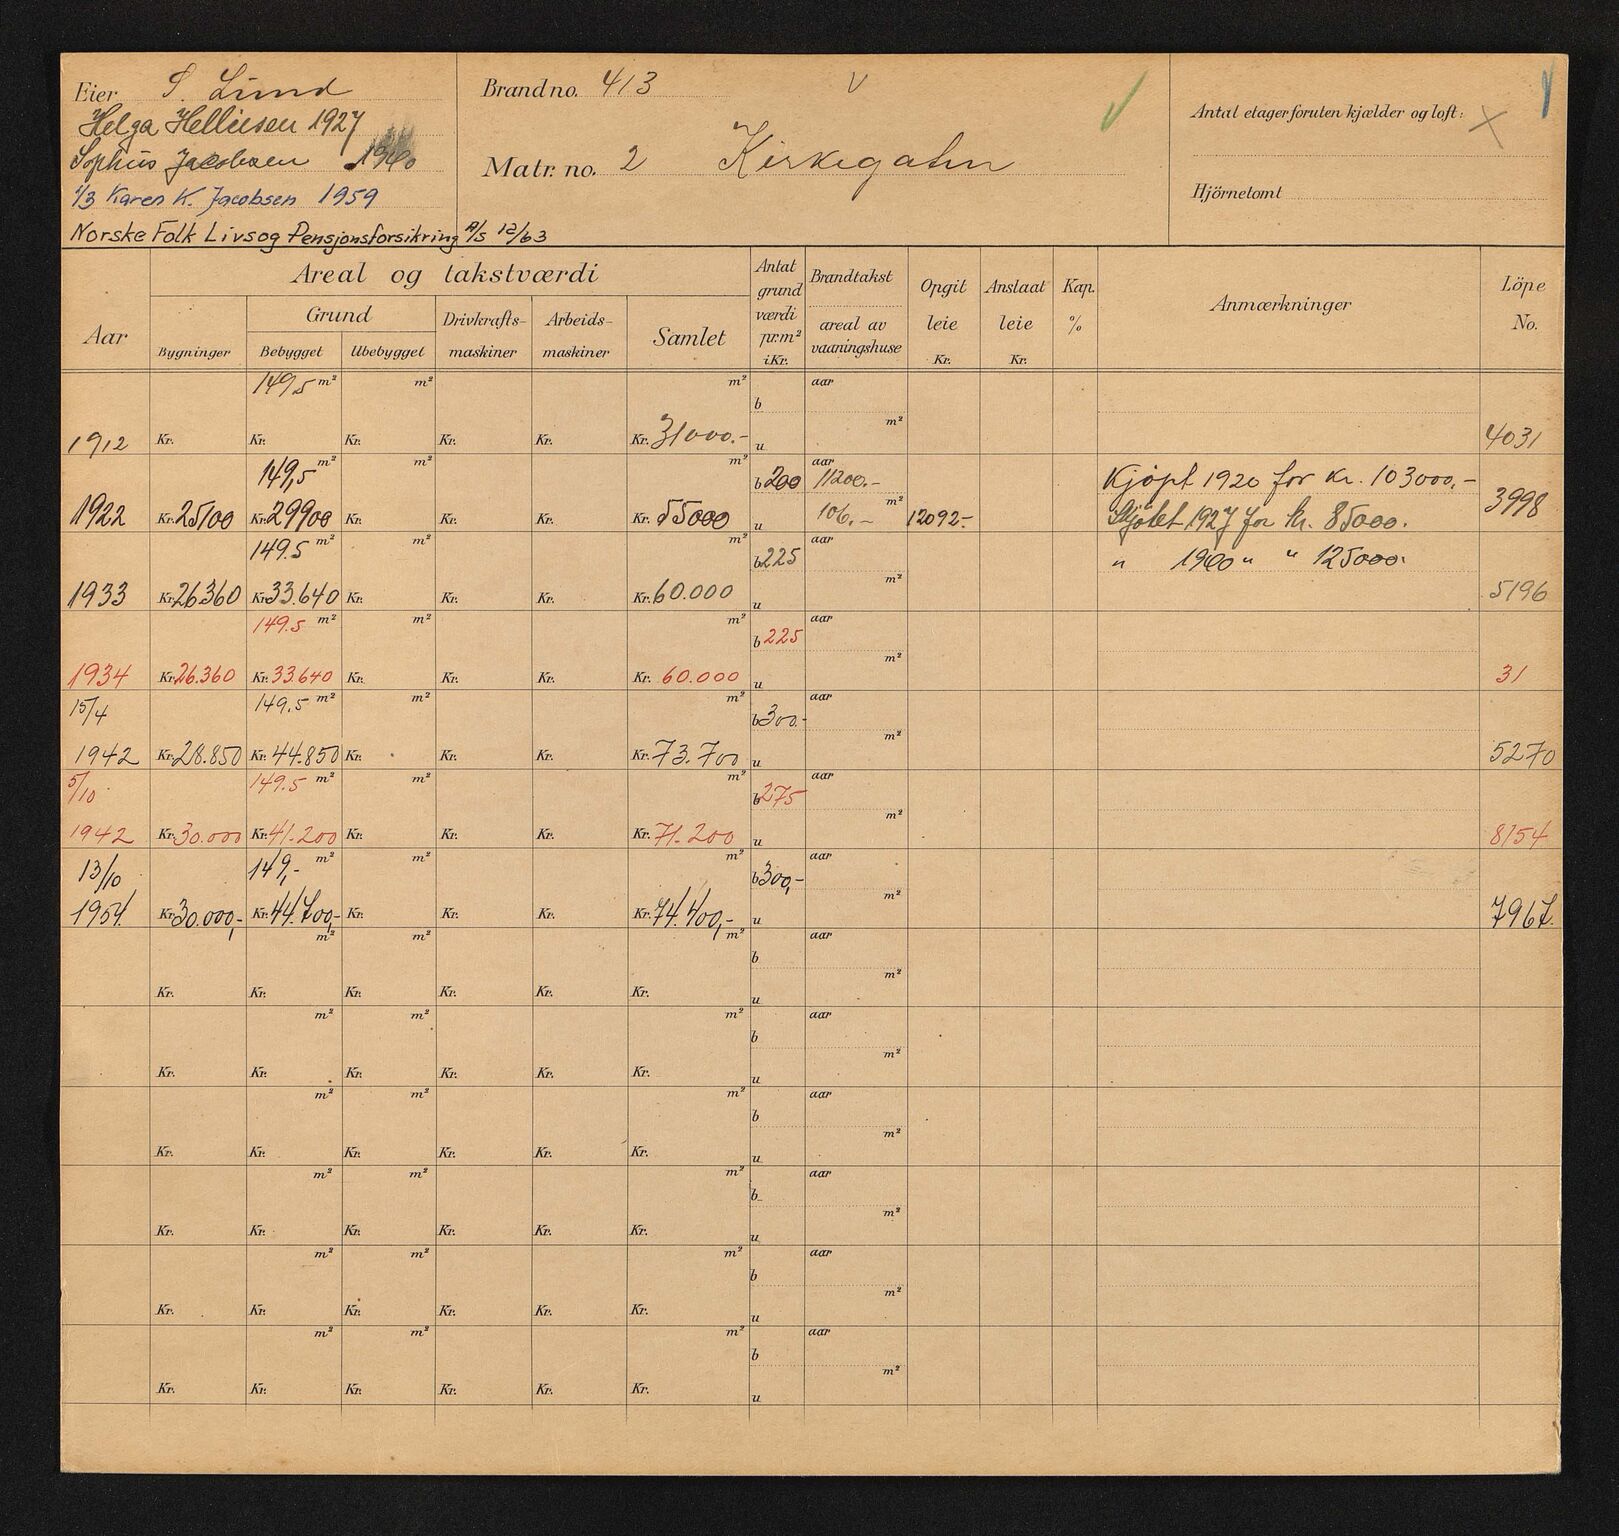 Eier S. Lund
Helga Helliesen 1927
Sophus Jacobsen 1940
1/3 Karen K. Jacobsen 1959
Norske Folk Livs og Pensjonsforsikring A/S 12/63
Brand no. 413 V
Matr. no. 2 Kirkegaten
Antal etager foruten kjælder og loft: X
Hjörnetomt
Aar
Areal og takstværdi
Bygninger
Grund
Bebygget Ubebygget
Drivkrafts-maskiner
Arbeids-maskiner
Samlet
Antat grund værdi pr. m² i Kr.
Brandtakst
areal av vaaningshuse
Opgit leie Kr.
Anslaat leie Kr.
Kap. %
Anmærkninger
Löpe No.
149,5 m² m² m² b aar
m²
1912 Kr. Kr. Kr. Kr. Kr. Kr. 31000.- u 4031
149,5 m² m² m² b 200 aar 11200.- Kjøpt 1920 for kr. 103000,-
1922 Kr. 25100 Kr. 29900 Kr. Kr. Kr. Kr. 55000 u 106.- m² 12092.- Skjøtet 1927 for kr. 85000. 3998
149.5 m² m² m² b 225 aar " 1940 " " 125000.
m²
1933 Kr. 26360 Kr. 33.640 Kr. Kr. Kr. Kr. 60.000 u 5196
149.5 m² m² m² b 225 aar
m²
1934 Kr. 26.360 Kr. 33640 Kr. Kr. Kr. Kr. 60.000 u 31
15/4 149,5 m² m² m² b 300.- aar
m²
1942 Kr. 28.850 Kr. 44.850 Kr. Kr. Kr. Kr. 73.700 u 5270
5/10 149.5 m² m² m² b 275 aar
m²
1942 Kr. 30.000 Kr. 41.200 Kr. Kr. Kr. Kr. 71.200 u 8154
13/10 149,- m² m² m² b 300,- aar
m²
1954 Kr. 30.000,- Kr. 44.400,- Kr. Kr. Kr. Kr. 74.400,- u 7967.
m² m² m² b aar
m²
Kr. Kr. Kr. Kr. Kr. Kr. u
m² m² m² b aar
m²
Kr. Kr. Kr. Kr. Kr. Kr. u
m² m² m² b aar
m²
Kr. Kr. Kr. Kr. Kr. Kr. u
m² m² m² b aar
m²
Kr. Kr. Kr. Kr. Kr. Kr. u
m² m² m² b aar
m²
Kr. Kr. Kr. Kr. Kr. Kr. u
m² m² m² b aar
m²
Kr. Kr. Kr. Kr. Kr. Kr. u